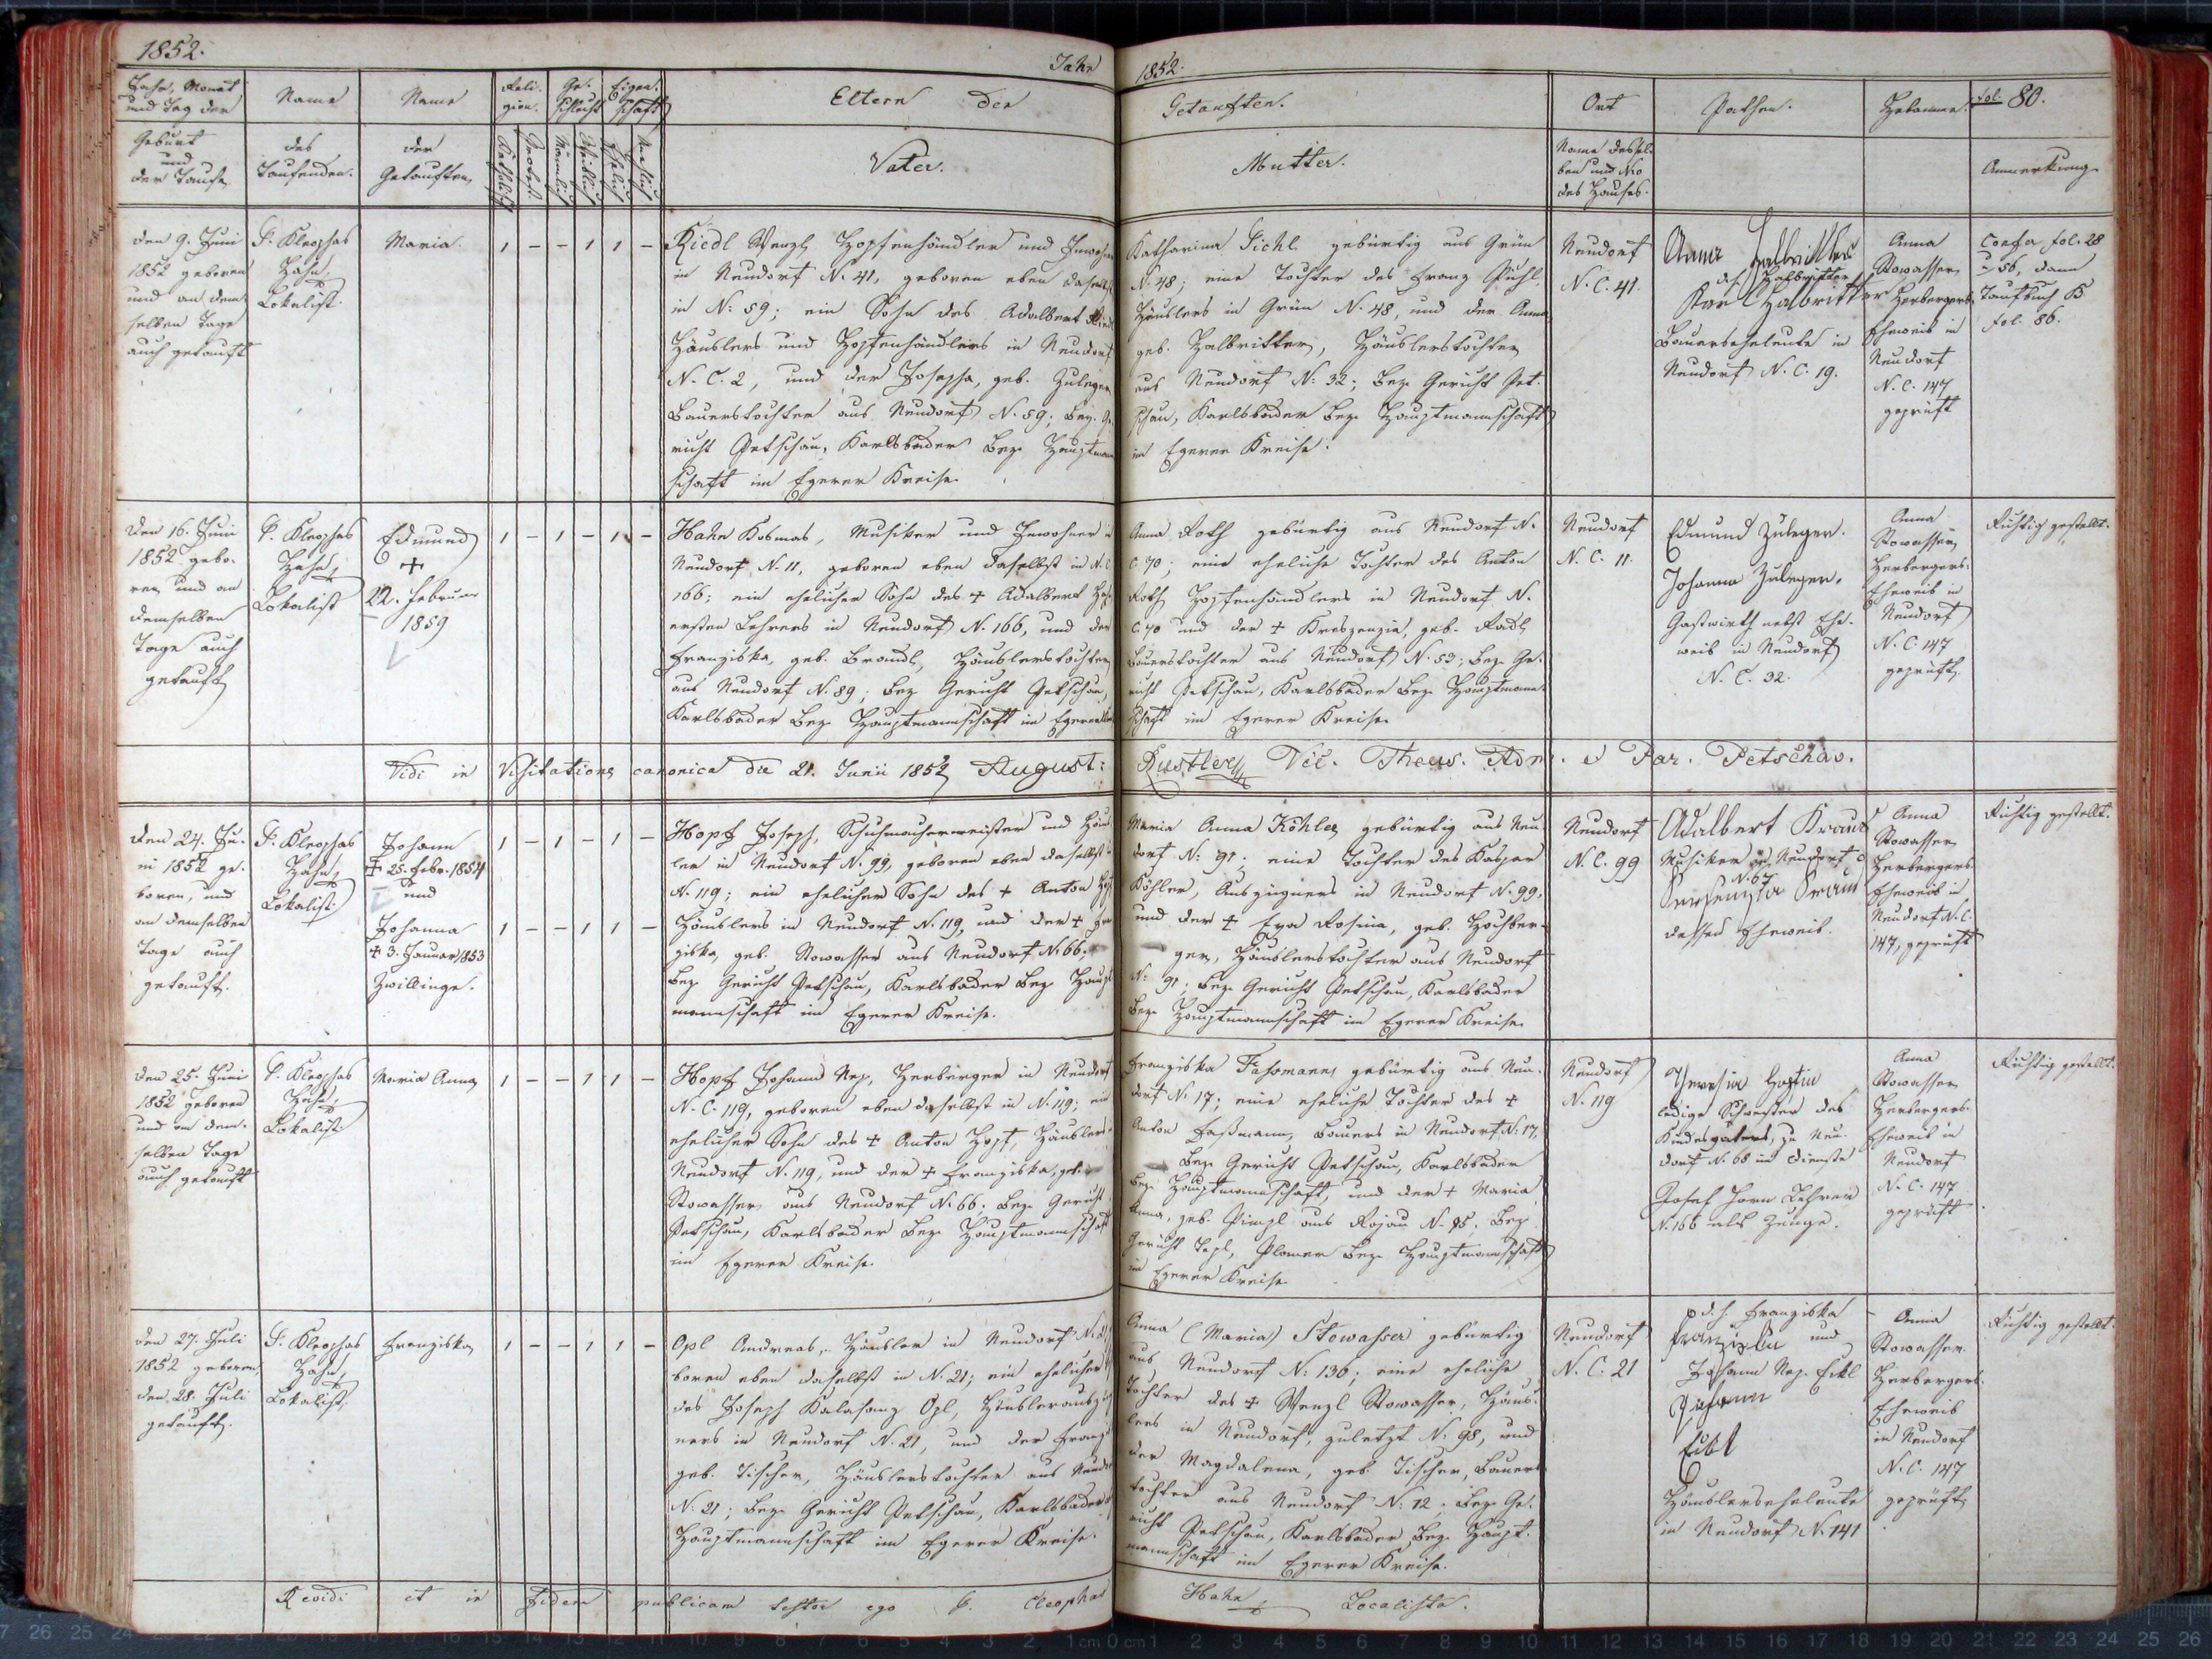 1852.
Jahr
Jahr, Monat
und Tag der
Name
Name
Reli-
gion.
Ge-
schlecht
Eigen-
schaft
Eltern der
Geburt
und
der Taufe
des
Taufenden.
der
Getauften
Katholisch
Protest.
Männlich
Weiblich
Ehelich
Unehelich
Vater.
den 9. Juni
1852 geboren
und an dem-
selben Tage
auch getauft
P. Kleophas
Hahn,
Lokalist.
Maria.
1 - - 1 1 -
Riedl Wenzl Hopfenhändler und Inwohner
in Neudorf N. 41, geboren eben daselbst
in N: 59; ein Sohn des Adalbert Riedl
Häuslers und Hopfenhändlers in Neudorf
N. C. 2, und der Josepha, geb. Zuleger
Bauerstochter aus Neudorf N. 59; Bez. Ge-
richt Petschau, Karlsbader Bez. Hauptmann-
schaft im Egerer Kreise.
den 16. Juni
1852 gebo-
ren und an
demselben
Tage auch
getauft
P. Kleophas
Hahn,
Lokalist
Edmund
+
22. Februar
1859
1 - 1 - 1 -
Hahn Kosmas, Musiker und Inwohner in
Neudorf N. 11, geboren eben daselbst in N. C.
166; ein ehelicher Sohn des + Adalbert Hahn
ersten Lehrers in Neudorf N. 166, und der
Franziska, geb. Brandl, Häuslerstochter
aus Neudorf N. 89; Bez. Gericht Petschau,
Karlsbader Bez. Hauptmannschaft im Egerer
Vidi in Visitatione canonica die 21. Junii 1852 August:
den 24. Ju-
ni 1852 ge-
boren, und
an demselben
Tage auch
getauft.
P. Kleophas
Hahn,
Lokalist
Johann
+ 25. Febr. 1854
und
Johanna
+ 3. Januar 1853
Zwillinge.
1 - 1 - 1 -
1 - - 1 1 -
Hopf Joseph, Schuhmachermeister und Häus-
ler in Neudorf N. 99, geboren eben daselbst in
N. 119; ein ehelicher Sohn des + Anton Hopf
Häuslers in Neudorf N. 119, und der + Fran-
ziska, geb. Stowasser aus Neudorf N. 66.
Bez. Gericht Petschau, Karlsbader Bez. Haupt-
mannschaft im Egerer Kreise.
den 25. Juni
1852 geboren
und an dem-
selben Tage
auch getauft
P. Kleophas
Hahn,
Lokalist
Maria Anna
1 - - 1 1 -
Hopf Johann Nep., Herberger in Neudorf
N. C. 119, geboren eben daselbst in N. 119; ein
ehelicher Sohn des + Anton Hopf, Häuslers in
Neudorf N. 119, und der + Franziska, geb.
Stowasser aus Neudorf N. 66. Bez. Gericht
Petschau, Karlsbader Bez. Hauptmannschaft
im Egerer Kreise.
den 27. Juli
1852 geboren,
den 28. Juli
getauft.
P. Kleophas
Hahn,
Lokalist.
Franziska
1 - - 1 1 -
Opl Andreas, Häusler in Neudorf N. 21,
boren eben daselbst in N. 21; ein ehelicher
des Joseph Kalasanz Opl, Häuslerauszüg-
ners in Neudorf N. 21, und der Franz.
geb. Tischer, Häuslerstochter aus Neudorf
N. 21; Bez. Gericht Petschau, Karlsbader
Hauptmannschaft im Egerer Kreise.
Revidi et in fidem publicam testor ego P. Cleophas
1852.
Getauften.
Ort
Pathen.
Hebamme.
fol. 80.
Mutter.
Name dessel-
ben und Nro
des Hauses.
Anmerkung.
Katharina Pichl. gebürtig aus Grün
N. 48; eine Tochter des Franz Pichl.
Häuslers in Grün N. 48, und der Anna
geb. Halbritter, Häuslerstochter
aus Neudorf N: 32; Bez. Gericht Pet-
schau, Karlsbader Bez. Hauptmannschaft
im Egerer Kreise.
Neudorf
N. C. 41.
Anna Halbritter
d.h. Halbritter
Karl Halbritter
Bauerseheleute in
Neudorf N. C. 19.
Anna
Stowasser
Herbergers-
Eheweib in
Neudorf
N. C. 147
geprüft
Confer fol. 28
u 56, dann
Taufbuch B
fol. 86.
Anna Roth gebürtig aus Neudorf N.
C. 70; eine eheliche Tochter des Anton
Roth Hopfenhändlers in Neudorf N.
C. 70 und der + Kreszenzia, geb. Radl
Bauerstochter aus Neudorf N. 53; Bez. Ge-
richt Petschau, Karlsbader Bez. Hauptmann-
schaft im Egerer Kreise.
Neudorf
N. C. 11.
Edmund Zuleger.
Johanna Zuleger.
Gastwirth nebst Ehe-
weib in Neudorf
N. C. 32.
Anna
Stowasser
Herbergers-
Eheweib in
Neudorf
N. C. 147
geprüft.
Richtig gestellt.
Kustler Vic. Theus. Adm. Par. Petschau.
Maria Anna Köhler gebürtig aus Neu-
dorf N: 91. eine Tochter des Kaspar
Köhler, Auszügners in Neudorf N. 99,
und der + Eva Rosina, geb. Hochber-
ger, Häuslerstochter aus Neudorf
N: 91; Bez. Gericht Petschau, Karlsbader
Bez. Hauptmannschaft im Egerer Kreise.
Neudorf
N. C. 99
Adalbert Kraus
Musiker in Neudorf
N. 67
Kraus
dessen Eheweib.
Anna
Stowasser
Herbergers-
Eheweib in
Neudorf N. C.
147, geprüft
Richtig gestellt.
Franziska Fassmann gebürtig aus Neu-
dorf N: 17; eine eheliche Tochter des +
Anton Faßmann, Bauers in Neudorf N. 17,
Bez. Gericht Petschau, Karlsbader
Bez. Hauptmannschaft, und der + Maria
Anna, geb. Pimpl aus Rojau N. 95. Bez.
Gericht Tepl, Planer Bez. Hauptmannschaft
im Egerer Kreise.
Neudorf
N. 119
Theresia Hopfin
ledige Schwester des
Kindesvaters, zu Neu-
dorf N. 68 im Dienste
Josef Horn Lehrer
N. 166 als Zeuge.
Anna
Stowasser
Herbergers-
Eheweib in
Neudorf
N. C. 147
geprüft
Richtig gestellt.
Anna (Maria) Stowasser gebürtig
aus Neudorf N: 136; eine eheliche
Tochter des + Wenzl Stowasser, Häus-
lers in Neudorf, zuletzt N. 98, und
der Magdalena, geb. Tischer, Bauers-
tochter aus Neudorf N: 12. Bez. Ge-
richt Petschau, Karlsbader Bez. Haupt-
mannschaft im Egerer Kreise.
Neudorf
N. C. 21
d.h. Franziska
Franziska und
Johann Nep. Eckl
Johann
Eckl
Häuslerseheleute
in Neudorf N. 141
Anna
Stowasser
Herbergers-
Eheweib
in Neudorf
N. C. 147
geprüft
Richtig gestellt.
Hahn Localista.